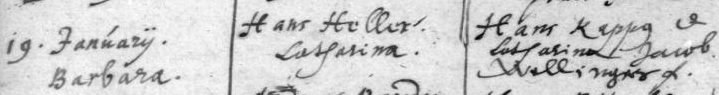 19. Januarÿ.
Barbara.
Hans Heller.
Catharina.
Hans Kapp
Catharina Jacob
Wellingers